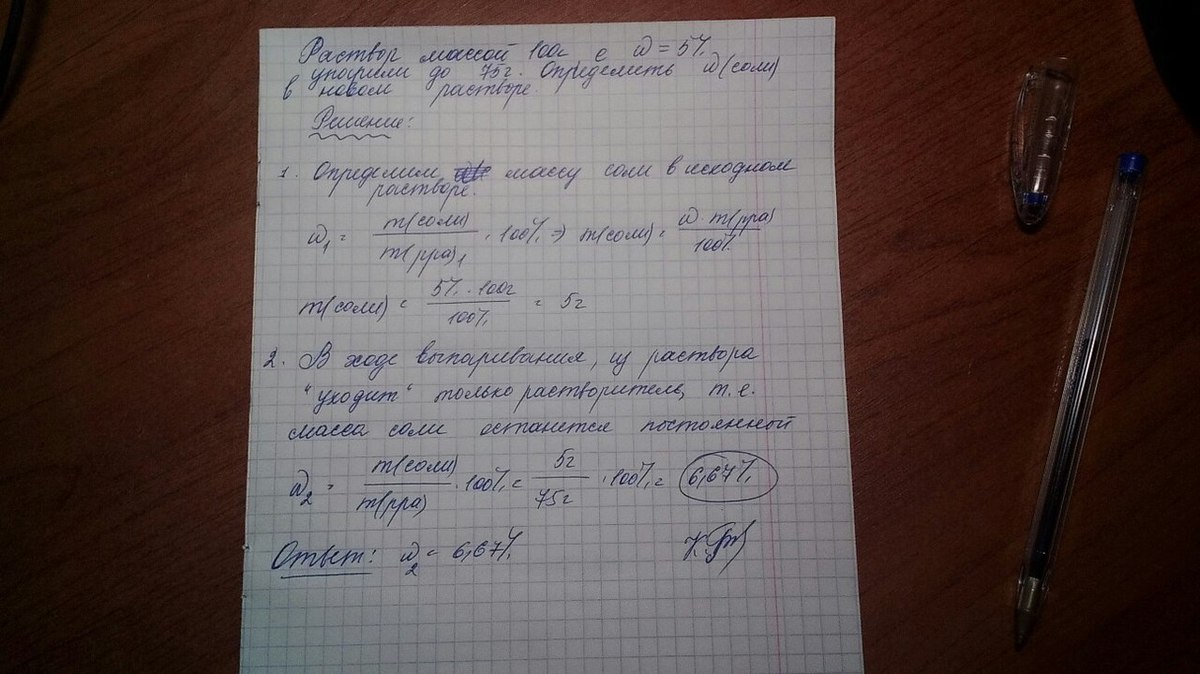 Раствор массой 100г с ω = 5%
упарили до 75г. Определить ω(соли)
в новом растворе.
Решение:
1. Определим массу соли в исходном
растворе.
ω₁ = m(соли) / m(рра)₁ · 100% ⇒ m(соли) = ω m(рра) / 100%
m(соли) = 5% · 100г / 100% = 5г
2. В ходе выпаривания, из раствора
"уходит" только растворитель, т.е.
масса соли останется постоянной
ω₂ = m(соли) / m(рра) · 100% = 5г / 75г · 100% = 6,67%
Ответ: ω₂ = 6,67%